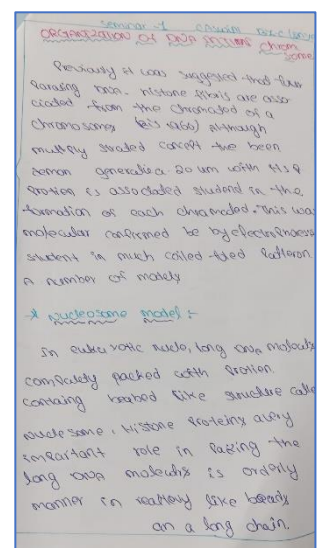 Seminar - 1
ORGANIZATION OF DNA chrom
some
Previously it was suggested that four
DNA. histone fibris are asso
ciated from the chromated of a
chromosomes 1966) although
multiply straded concept the been
demon generatica. 20 um with its
protion is associated student in the
formation of each chromated. This was
molecular confirmed be by electro
student in much coiled-foled Patteron
A number of models
* Nucleosome model :-
In eukarotic nucle, long DNA molecule
compately packed with protion
containg beabed like structure calle
nucle some. Histone proteins a very
impartant role in Paking the
long DNA molecules is orderly
manner in like beads
an a long chain.